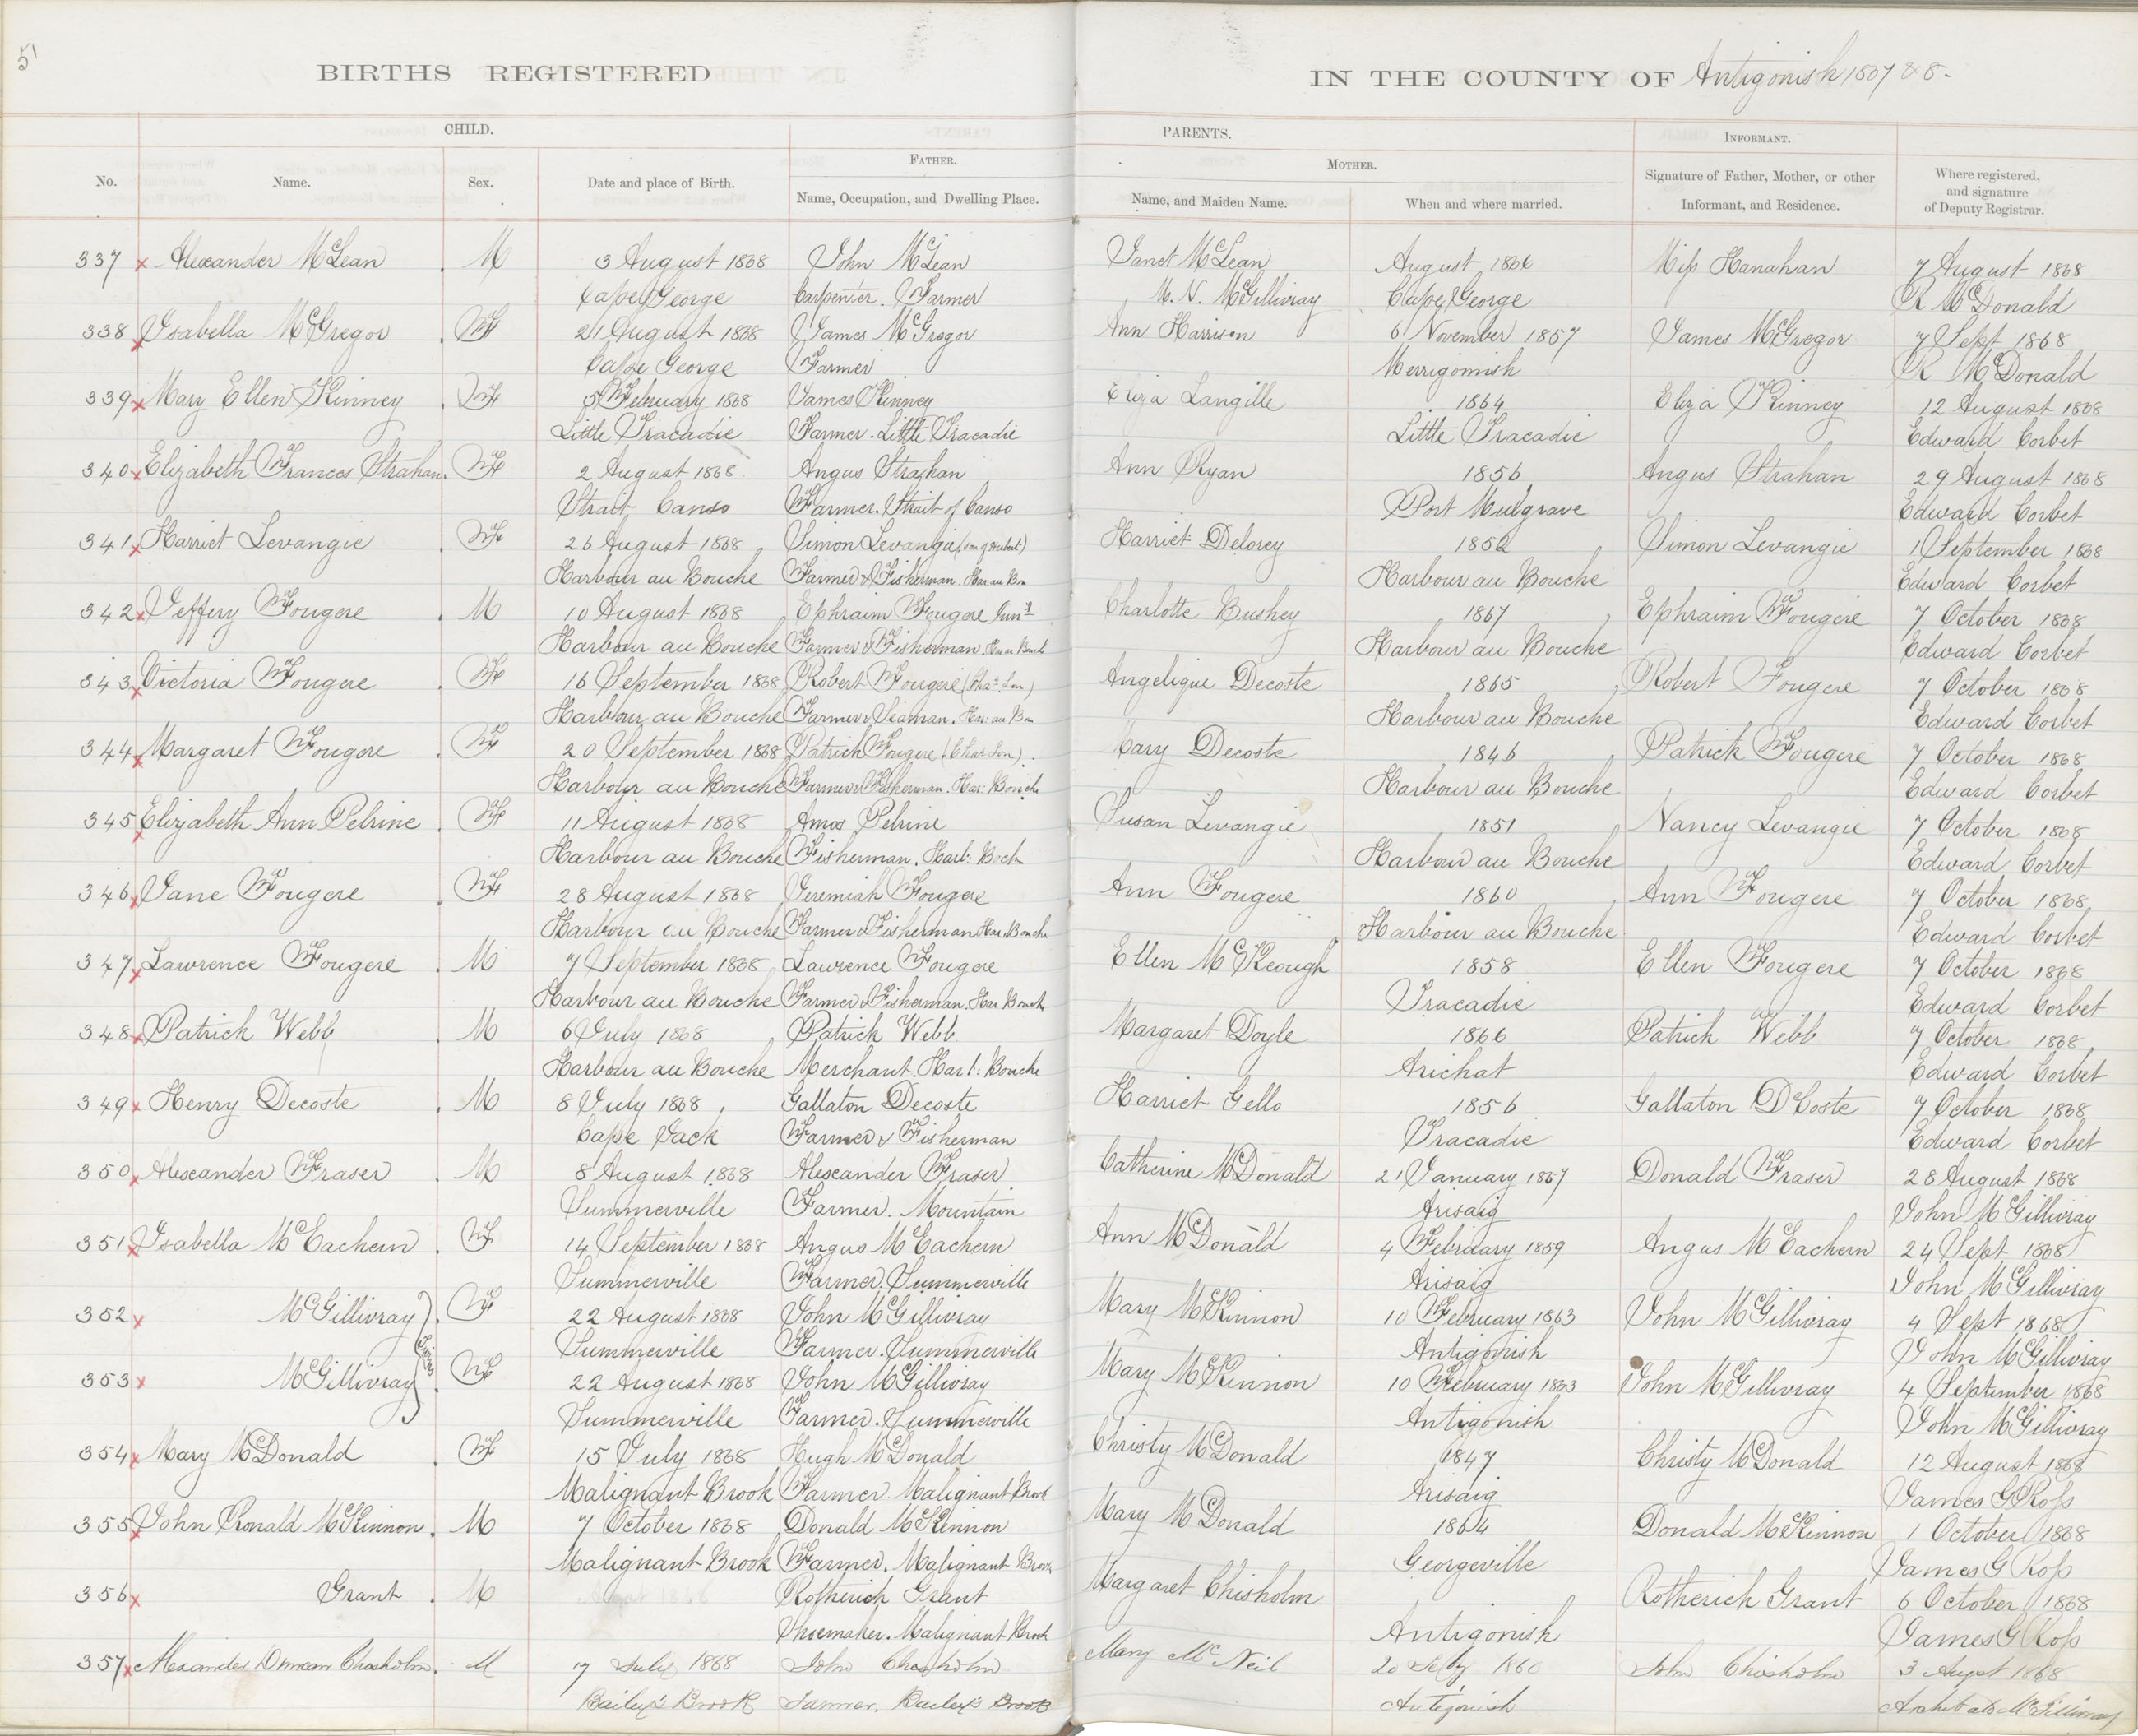 51
BIRTHS REGISTERED IN THE COUNTY OF Antigonish 1867 & 8.
CHILD. PARENTS. INFORMANT.
FATHER. MOTHER.
No. Name. Sex. Date and place of Birth. Name, Occupation, and Dwelling Place. Name, and Maiden Name. When and where married. Signature of Father, Mother, or other Informant, and Residence. Where registered, and signature of Deputy Registrar.
337 x Alexander McLean . M 3 August 1868 John McLean Janet McLean August 1866 Miss Hanahan 7 August 1868
Cape George Carpenter. Farmer M. N. McGillivray Cape George R McDonald
338 x Isabella McGregor . F 21 August 1868 James McGregor Ann Harrison 6 November 1857 James McGregor 7 Sept 1868
Cape George Farmer Merrigomish R McDonald
339 x Mary Ellen Kinney . F 5 February 1868 James Kinney Eliza Langille 1864 Eliza Kinney 12 August 1868
Little Tracadie Farmer. Little Tracadie Little Tracadie Edward Corbet
340 x Elizabeth Frances Strahan . F 2 August 1868 Angus Strahan Ann Ryan 1856 Angus Strahan 29 August 1868
Strait Canso Farmer. Strait of Canso Port Mulgrave Edward Corbet
341 x Harriet Levangie . F 26 August 1868 Simon Levangie (son of Hubert) Harriet Delorey 1852 Simon Levangie 1 September 1868
Harbour au Bouche Farmer & Fisherman. Har au Bou Harbour au Bouche Edward Corbet
342 x Jeffery Fougere . M 10 August 1868 Ephraim Fougere Junr Charlotte Bushey 1867 Ephraim Fougere 7 October 1868
Harbour au Bouche Farmer & Fisherman. Har au Bouche Harbour au Bouche Edward Corbet
343 x Victoria Fougere . F 16 September 1868 Robert Fougere (Chas Son) Angelique Decoste 1865 Robert Fougere 7 October 1868
Harbour au Bouche Farmer & Seaman. Har: au Bou Harbour au Bouche Edward Corbet
344 x Margaret Fougere . F 20 September 1868 Patrick Fougere (Chas Son) Mary Decoste 1846 Patrick Fougere 7 October 1868
Harbour au Bouche Farmer & Fisherman. Har: Bouche Harbour au Bouche Edward Corbet
345 x Elizabeth Ann Pelrine . F 11 August 1868 Amos Pelrine Susan Levangie 1851 Nancy Levangie 7 October 1868
Harbour au Bouche Fisherman. Harb: Boch Harbour au Bouche Edward Corbet
346 x Jane Fougere . F 28 August 1868 Jeremiah Fougere Ann Fougere 1860 Ann Fougere 7 October 1868
Harbour au Bouche Farmer & Fisherman Har Bouche Harbour au Bouche Edward Corbet
347 x Lawrence Fougere . M 7 September 1868 Lawrence Fougere Ellen McKeough 1858 Ellen Fougere 7 October 1868
Harbour au Bouche Farmer & Fisherman. Har Bouche Tracadie Edward Corbet
348 x Patrick Webb . M 6 July 1868 Patrick Webb Margaret Doyle 1866 Patrick Webb 7 October 1868
Harbour au Bouche Merchant. Harb: Bouche Arichat Edward Corbet
349 x Henry Decoste . M 8 July 1868 Gallaton Decoste Harriet Gello 1856 Gallaton DCoste 7 October 1868
Cape Jack Farmer & Fisherman Tracadie Edward Corbet
350 x Alexander Fraser . M 8 August 1868 Alexander Fraser Catherine McDonald 21 January 1867 Donald Fraser 28 August 1868
Summerville Farmer. Mountain Arisaig John McGillivray
351 x Isabella McEachern . F 14 September 1868 Angus McEachern Ann McDonald 4 February 1859 Angus McEachern 24 Sept 1868
Summerville Farmer. Summerville Arisaig John McGillivray
352 x McGillivray } Twins . F 22 August 1868 John McGillivray Mary McKinnon 10 February 1863 John McGillivray 4 Sept 1868
Summerville Farmer. Summerville Antigonish John McGillivray
353 x McGillivray . F 22 August 1868 John McGillivray Mary McKinnon 10 February 1863 John McGillivray 4 September 1868
Summerville Farmer. Summerville Antigonish John McGillivray
354 x Mary McDonald . F 15 July 1868 Hugh McDonald Christy McDonald 1847 Christy McDonald 12 August 1868
Malignant Brook Farmer Malignant Brook Arisaig James G Ross
355 x John Ronald McKinnon . M 7 October 1868 Donald McKinnon Mary McDonald 1864 Donald McKinnon 1 October 1868
Malignant Brook Farmer. Malignant Brook Georgeville James G Ross
356 x Grant . M Rotherick Grant Margaret Chisholm Rotherick Grant 6 October 1868
Shoemaker. Malignant Brook Antigonish James G Ross
357 x Alexander Duncan Chisholm . M 7 July 1868 John Chisholm Mary McNeil 20 July 1860 John Chisholm 3 August 1868
Bailey's Brook Farmer. Bailey's Brook Antigonish Archibald McGillivray